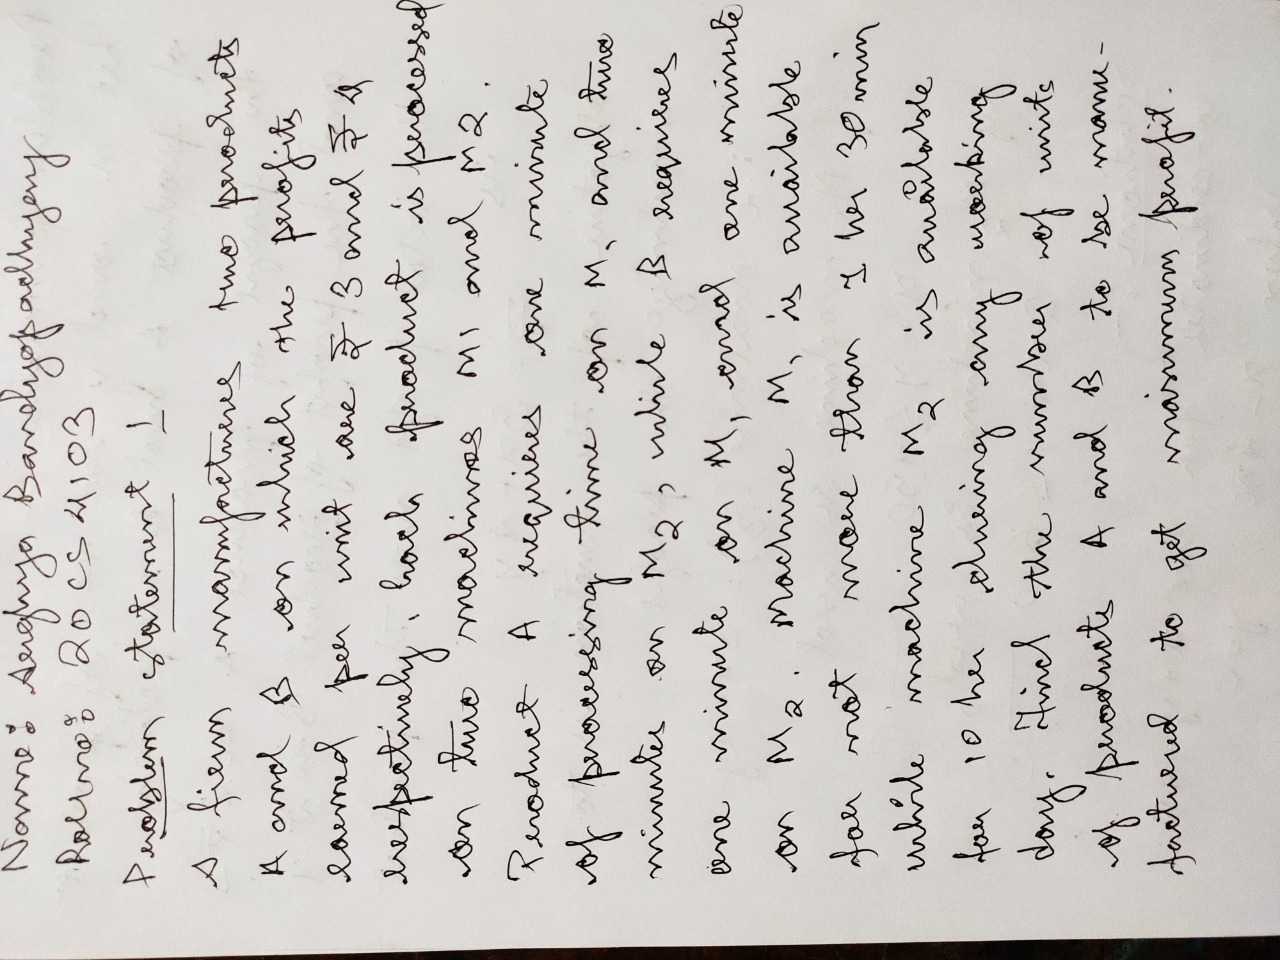 Name: Arghya Bandyopadhyay
Rollno: 20CS4103
Problem statement 1
A firm manufactures two products
A and B on which the profits
earned per unit are ₹ 3 and ₹ 4
respectively. Each product is processed
on two machines M1 and M2.
Product A requires one minute
of processing time on M1 and two
minutes on M2, while B requires
one minute on M1 and one minute
on M2. Machine M1 is available
for not more than 7 hr 30 min
while machine M2 is available
for 10 hr during any working
day. Find the number of units
of products A and B to be manu-
factured to get maximum profit.